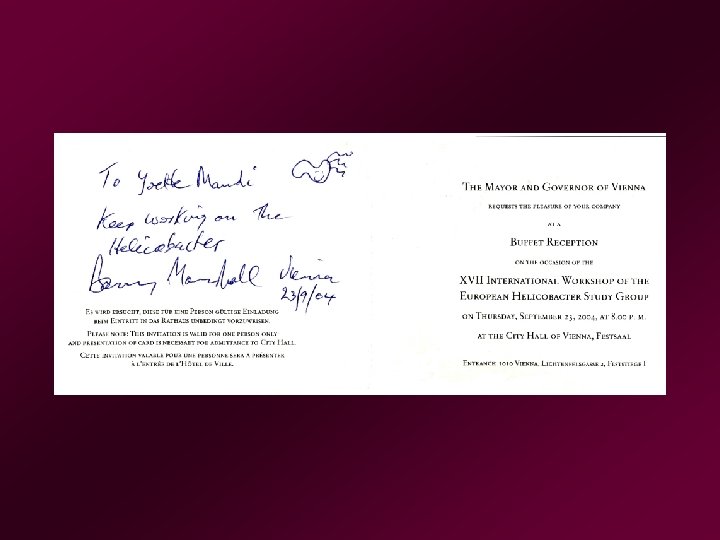 To Yvette Mandi
Keep working on the
Helicobacter
Barry Marshall Vienna
23/9/04
Es wird ersucht, diese für eine Person gültige Einladung
beim Eintritt in das Rathaus unbedingt vorzuweisen.
Please note: This invitation is valid for one person only
and presentation of card is necessary for admittance to City Hall.
Cette invitation valable pour une personne sera à présenter
à l'entrée de l'Hôtel de Ville.
The Mayor and Governor of Vienna
requests the pleasure of your company
at a
Buffet Reception
on the occasion of the
XVII International Workshop of the
European Helicobacter Study Group
on Thursday, September 23, 2004, at 8.00 p. m.
at the City Hall of Vienna, Festsaal
Entrance: 1010 Vienna, Lichtenfelsgasse 2, Feststiege I